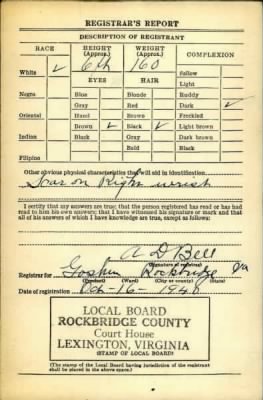 REGISTRAR'S REPORT
DESCRIPTION OF REGISTRANT
RACE HEIGHT (Approx.) WEIGHT (Approx.) COMPLEXION
White ✓ 6 ft 160 Sallow
EYES HAIR Light
Negro Blue Blonde Ruddy
Gray Red Dark ✓
Oriental Hazel Brown Freckled
Brown ✓ Black ✓ Light brown
Indian Black Gray Dark brown
Bald Black
Filipino
Other obvious physical characteristics that will aid in identification
Scar on Right wrist
I certify that my answers are true; that the person registered has read or has
had read to him his own answers; that I have witnessed his signature or mark and that
all of his answers of which I have knowledge are true, except as follows:
A D Bell
(Signature of registrar)
Registrar for Goshen Rockbridge Va
(Precinct) (Ward) (City or county) (State)
Date of registration Oct-16-1940
LOCAL BOARD
ROCKBRIDGE COUNTY
Court House
LEXINGTON, VIRGINIA
(STAMP OF LOCAL BOARD)
(The stamp of the Local Board having jurisdiction of the registrant
shall be placed in the above space.)